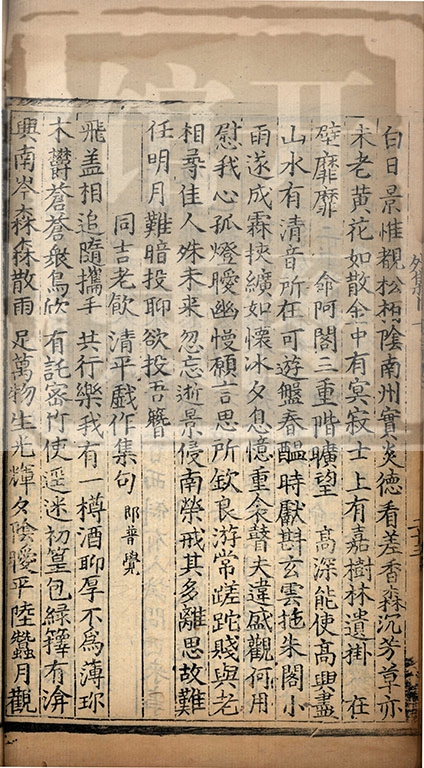 白日景惟觀松柏陰南州實炎德看差香森沉芳草亦
未老黃花如散金中有冥寂士上有嘉樹林遺掛 在
壁靡靡 命阿閣三重階曠望 高深能使高興盡
山水有清音所在可遊盤春醖時獻斟玄雲拖朱閣小
雨遂成霖挾纊如懷冰夕息憶重衾瞽夫違盛觀何用
慰我心孤燈曖幽慢願言思所欽良游常蹉跎賤與老
相尋佳人殊未來忽忘逝景侵南榮戒其多離思故難
任明月難暗投聊欲投吾簪
同吉老飲清平戲作集句 即普覺
飛盖相追隨攜手共行樂我有一樽酒聊厚不為薄珎
木鬱蒼蒼衆鳥欣有託密竹使逕迷初篁包綠籜有渰
興南岑森森散雨足萬物生光輝夕陰曖平陸蟾月觀
外集